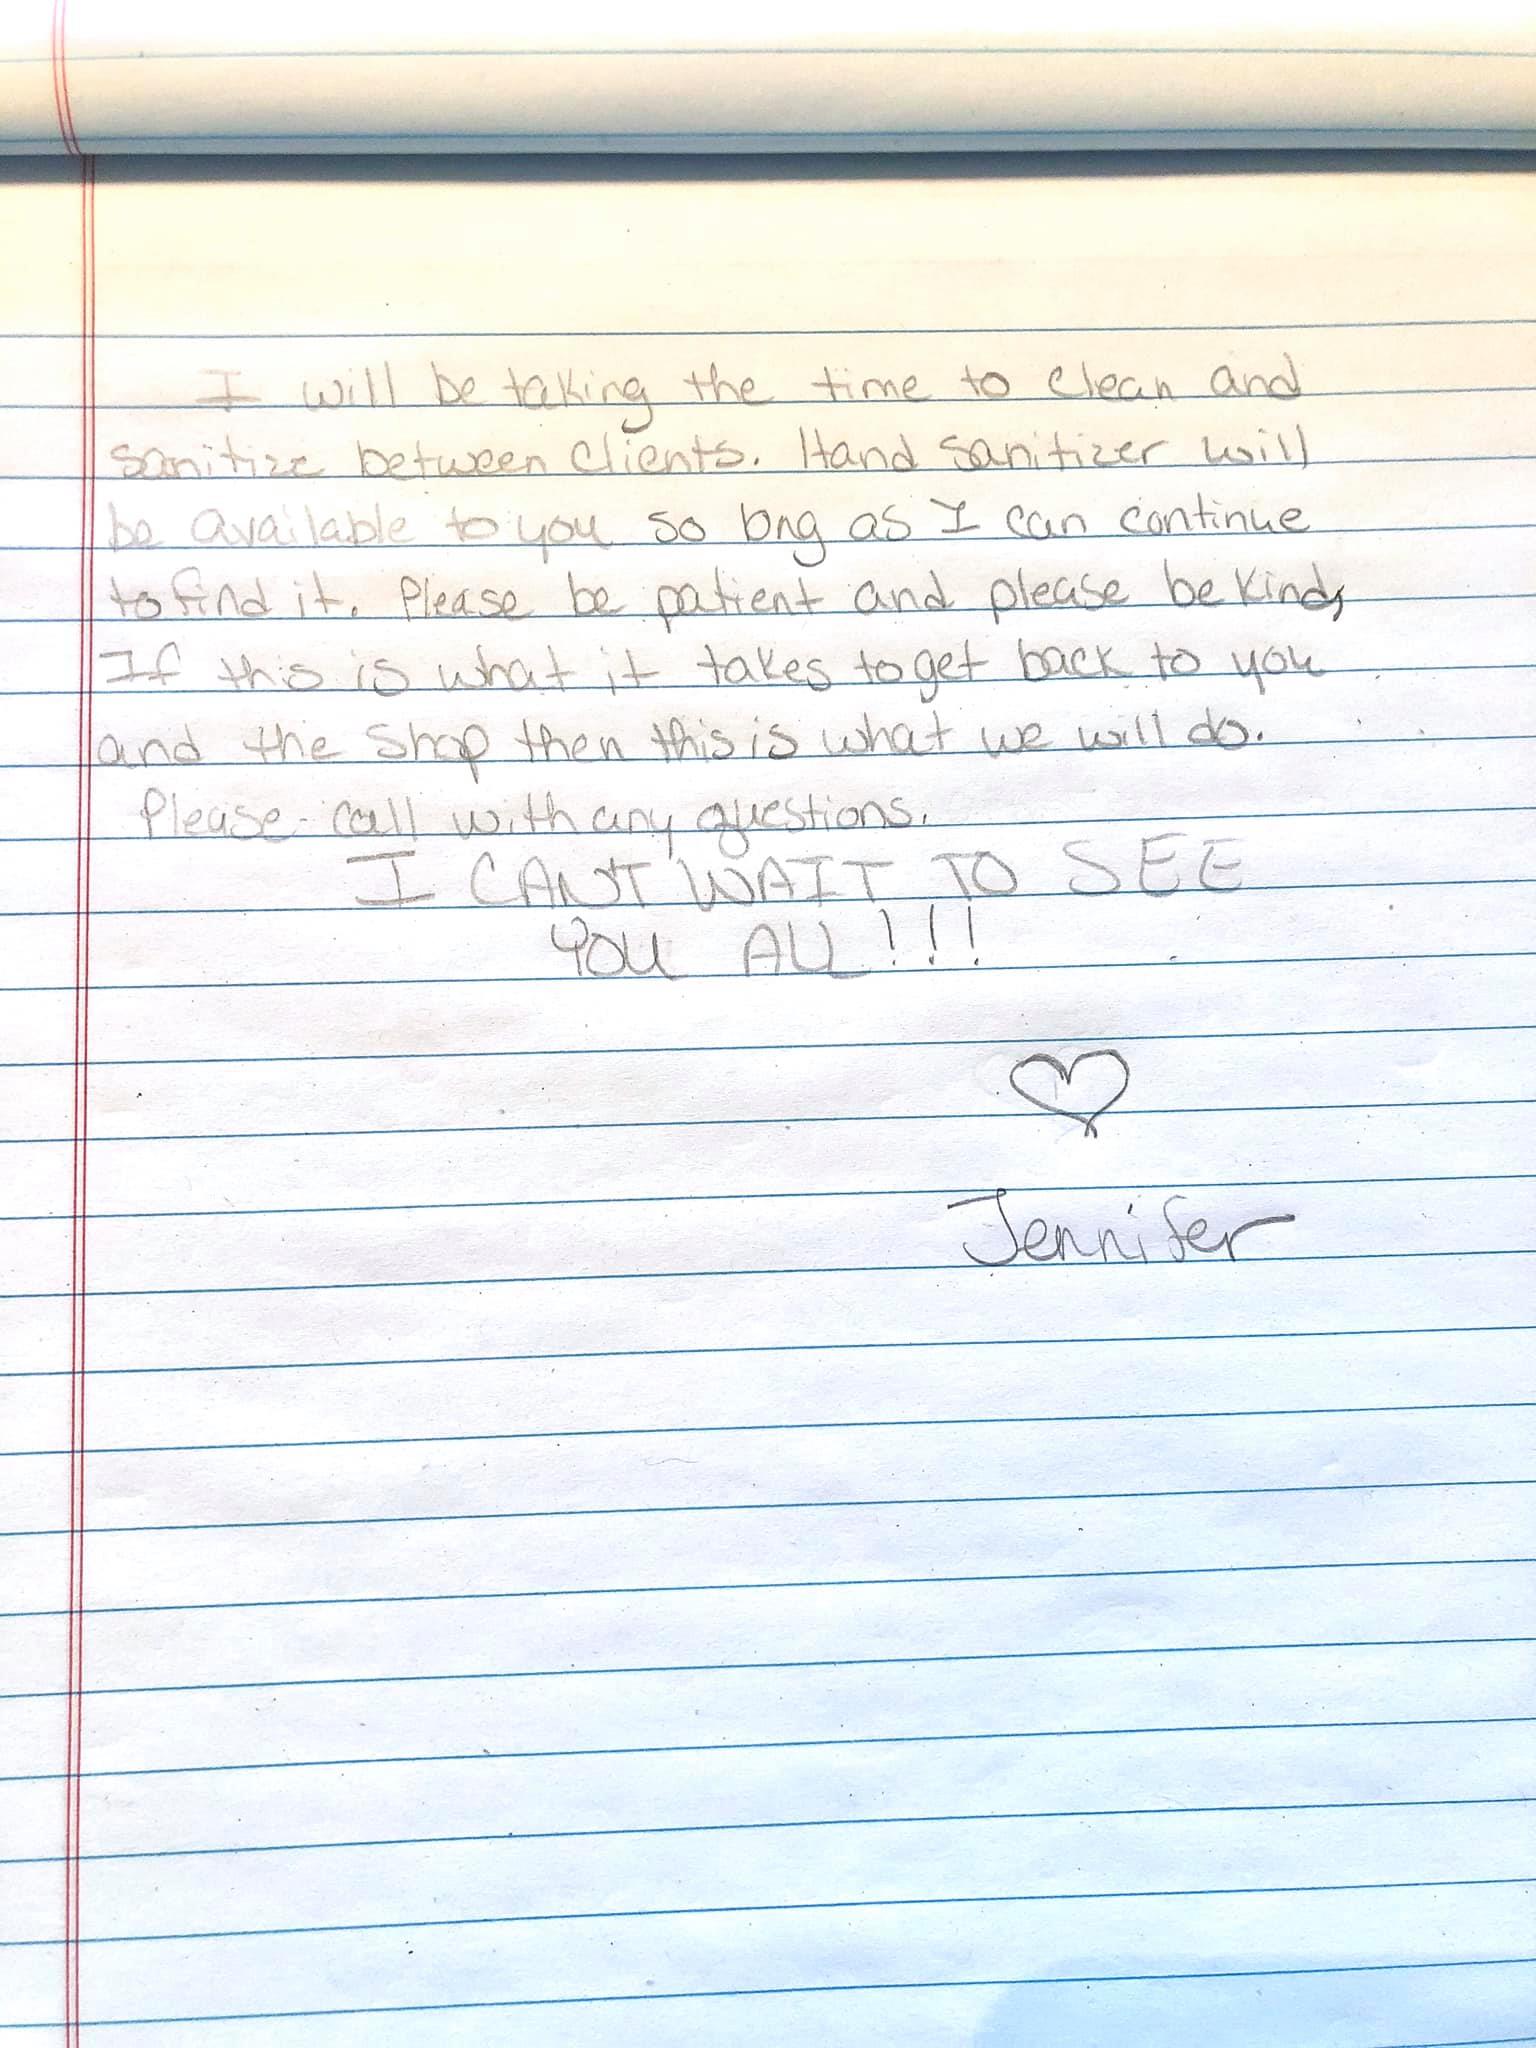 I will be taking the time to clean and
sanitize between clients. Hand sanitizer will
be available to you so long as I can continue
to find it. Please be patient and please be kind,
If this is what it takes to get back to you
and the shop then this is what we will do.
Please call with any questions.
I CAN'T WAIT TO SEE
YOU ALL!!!
Jennifer